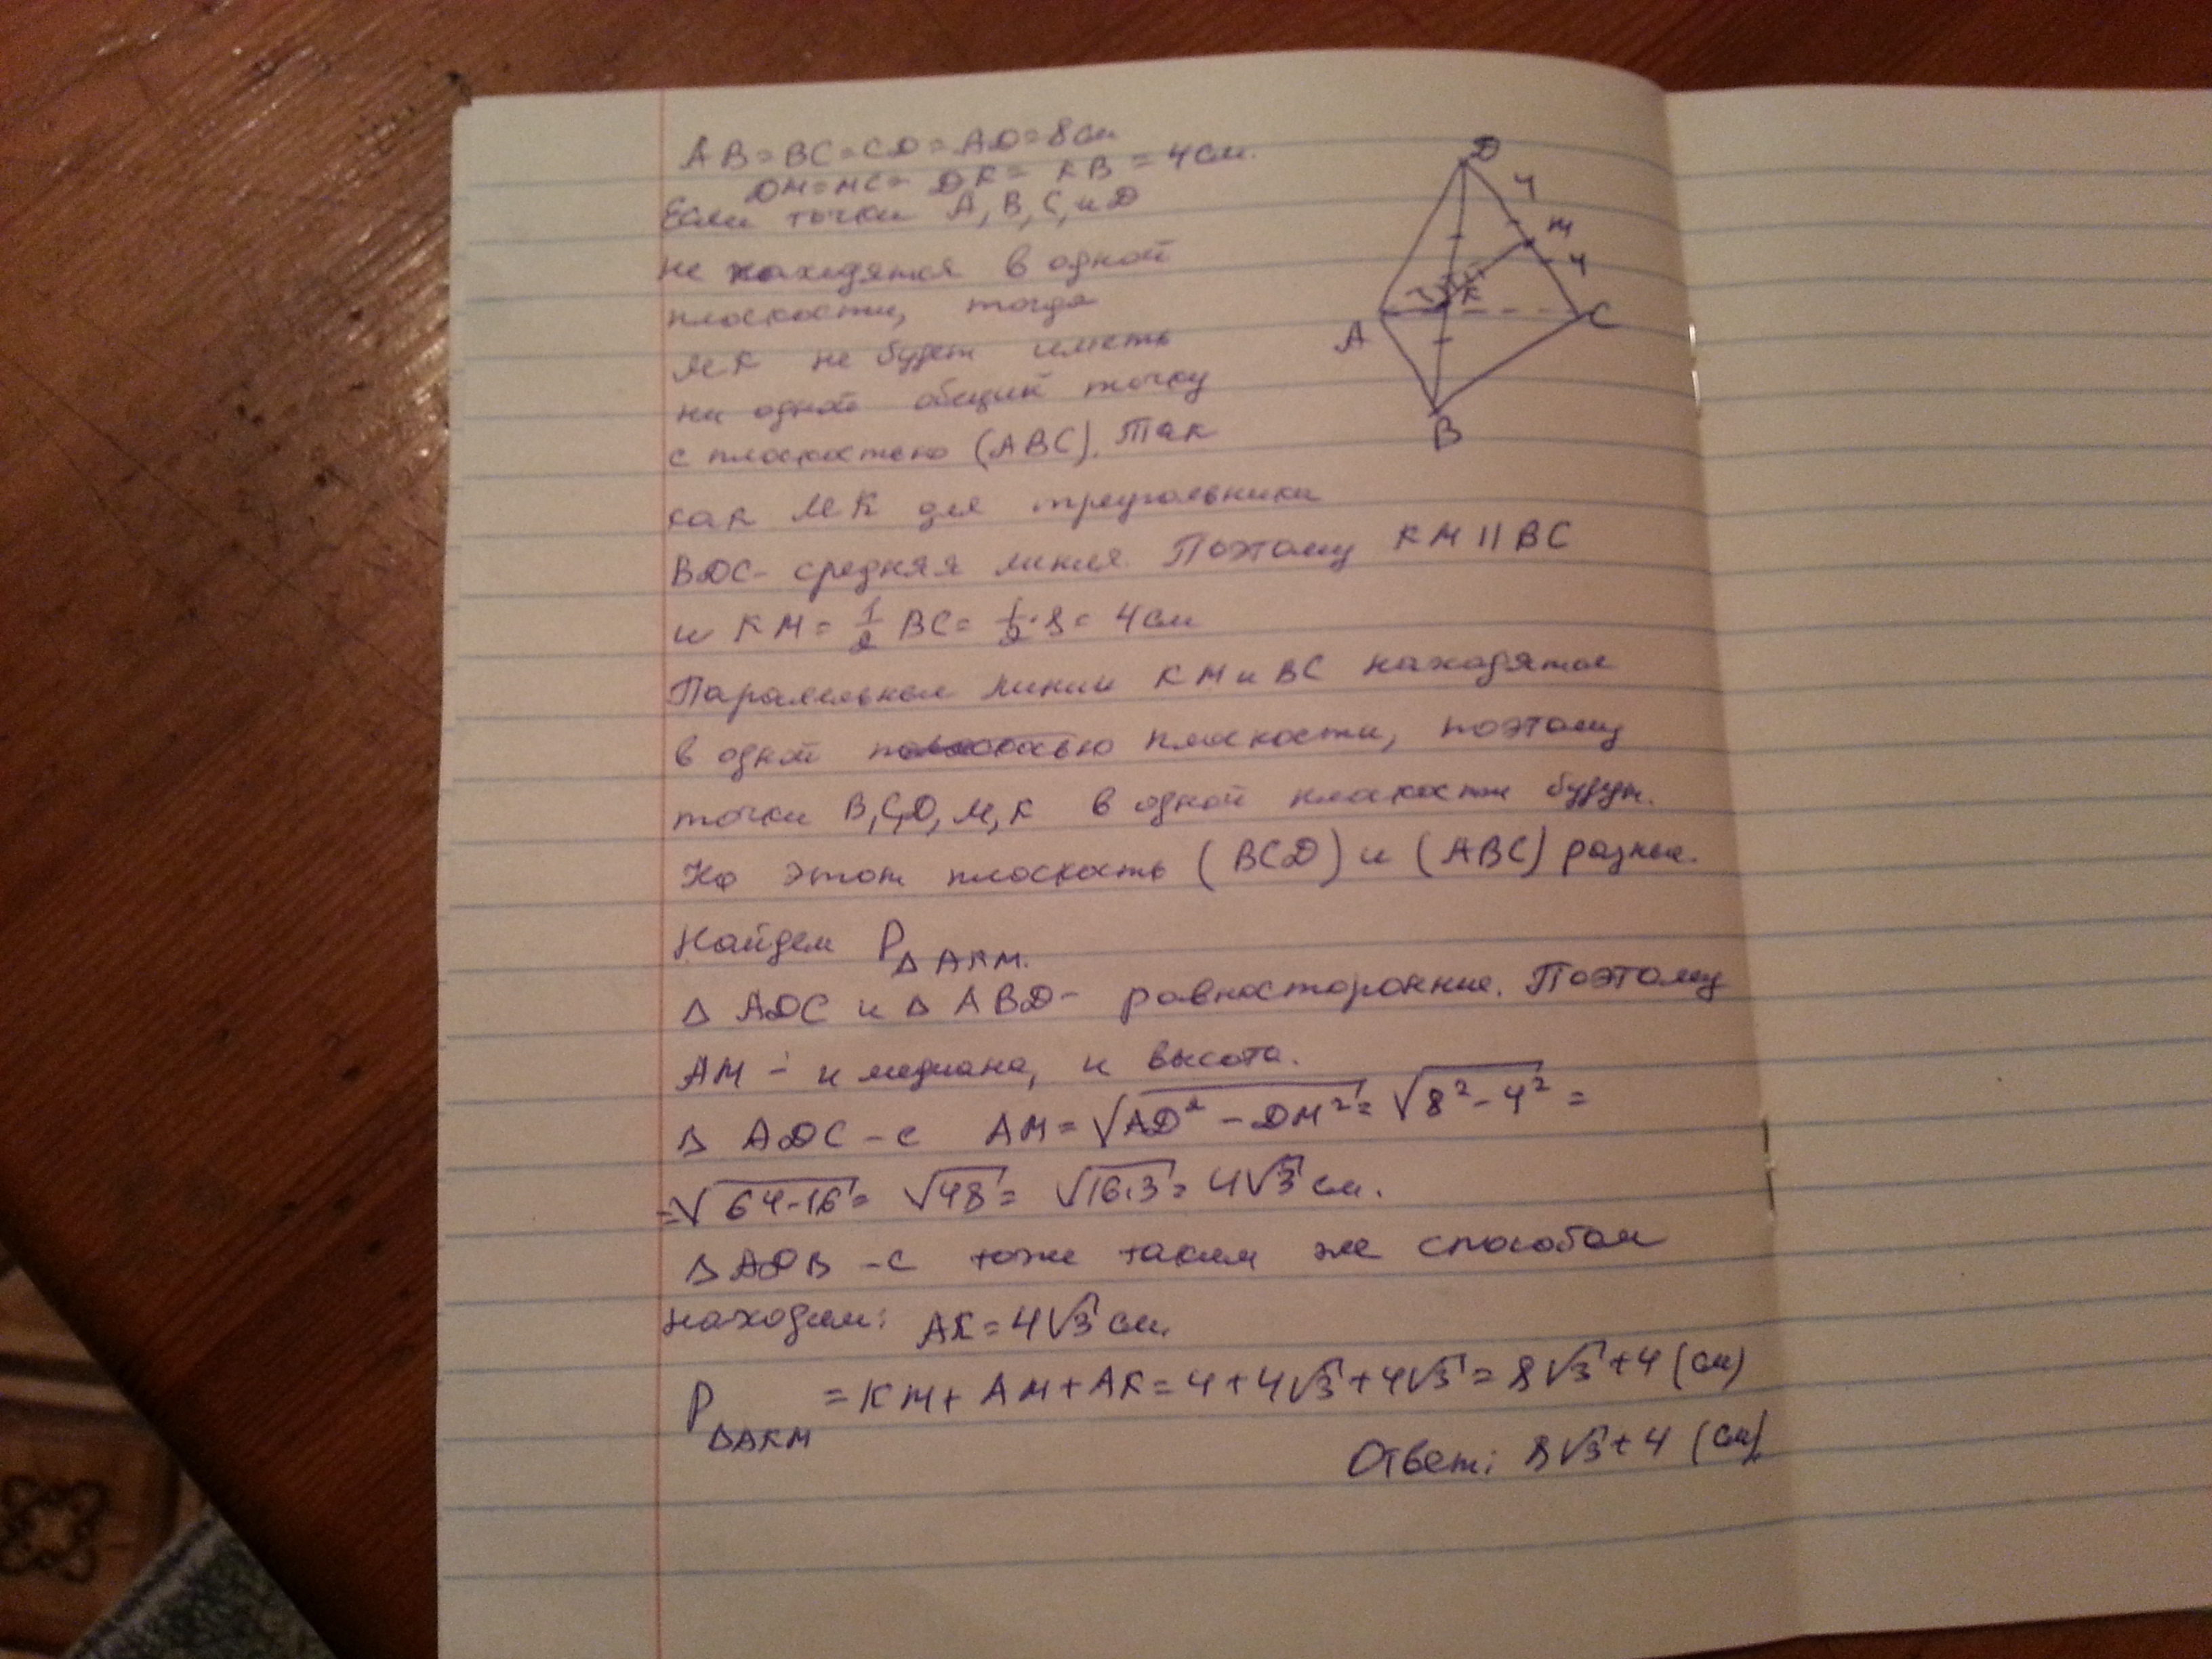 AB=BC=CD=AD=8см
DM=MC= DK= KB = 4см.
Если точки A, B, C, и D
не находятся в одной
плоскости, тогда
MK не будет иметь
ни одной общий точку
с плоскостью (ABC). Так
как MK для треугольника
BDC- средняя линия. Поэтому KM || BC
и KM = 1/2 BC = 1/2·8 = 4см
Паралельные линии KM и BC находятся
в одной плоскости, поэтому
точки B, C, D, M, K в одной плоскости будут.
Но этот плоскость (BCD) и (ABC) разные.
Найдем P△AKM.
△ ADC и △ ABD- равносторонние. Поэтому
AM - и медиана, и высота.
△ ADC - с AM = √AD² - DM² = √8² - 4² =
=√64-16 = √48 = √16·3 = 4√3 см.
△ ADB - с тоже таким же способом
находим: AK = 4√3 см.
P△AKM = KM + AM + AK = 4 + 4√3 + 4√3 = 8√3 + 4 (см)
Ответ: 8√3 + 4 (см)
D
4
M
4
K
A
C
B